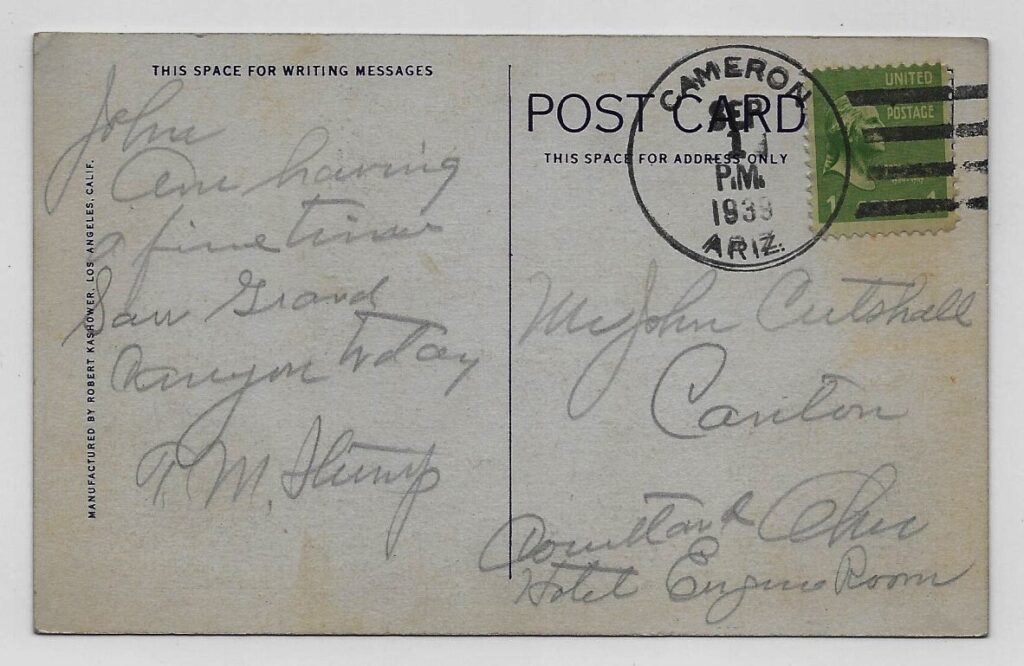 THIS SPACE FOR WRITING MESSAGES
John
Am having
a fine time
Saw Grand
Kanyon today
Stump
MANUFACTURED BY ROBERT KASHOWER, LOS ANGELES, CALIF.
POST CARD
THIS SPACE FOR ADDRESS ONLY
CAMERON
SEP
P.M.
1939
ARIZ.
UNITED
POSTAGE
Mr John Cutshall
Canton
Ohio
Hotel Engine Room